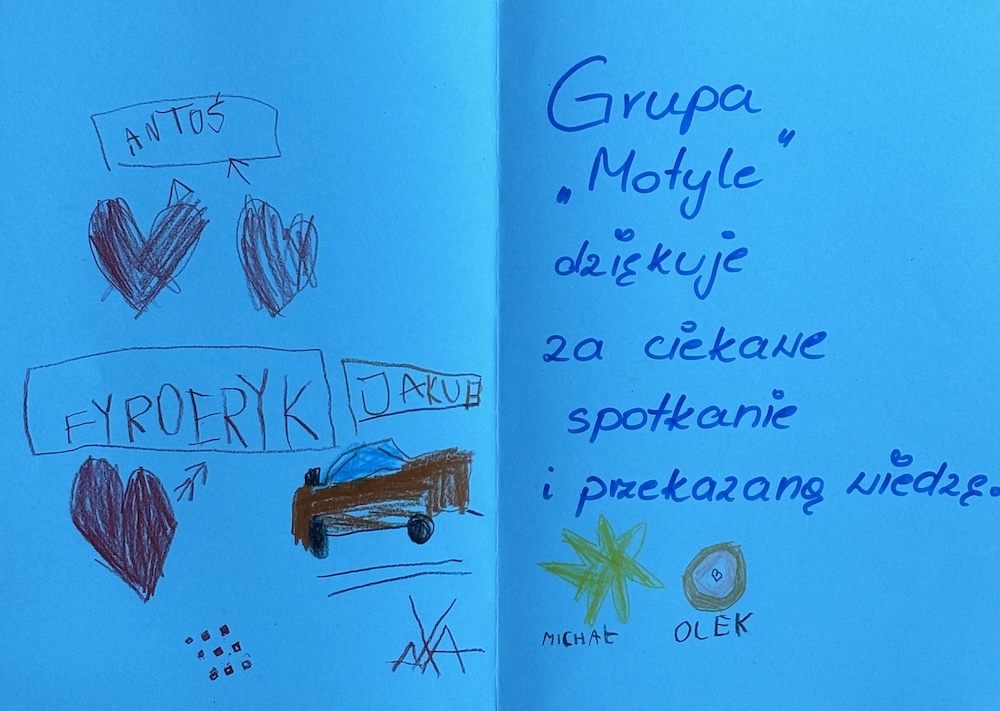 ANTOŚ
FYROERYK
JAKUB
Grupa
„Motyle"
dziękuje
za ciekawe
spotkanie
i przekazaną wiedzę.
MICHAŁ
OLEK